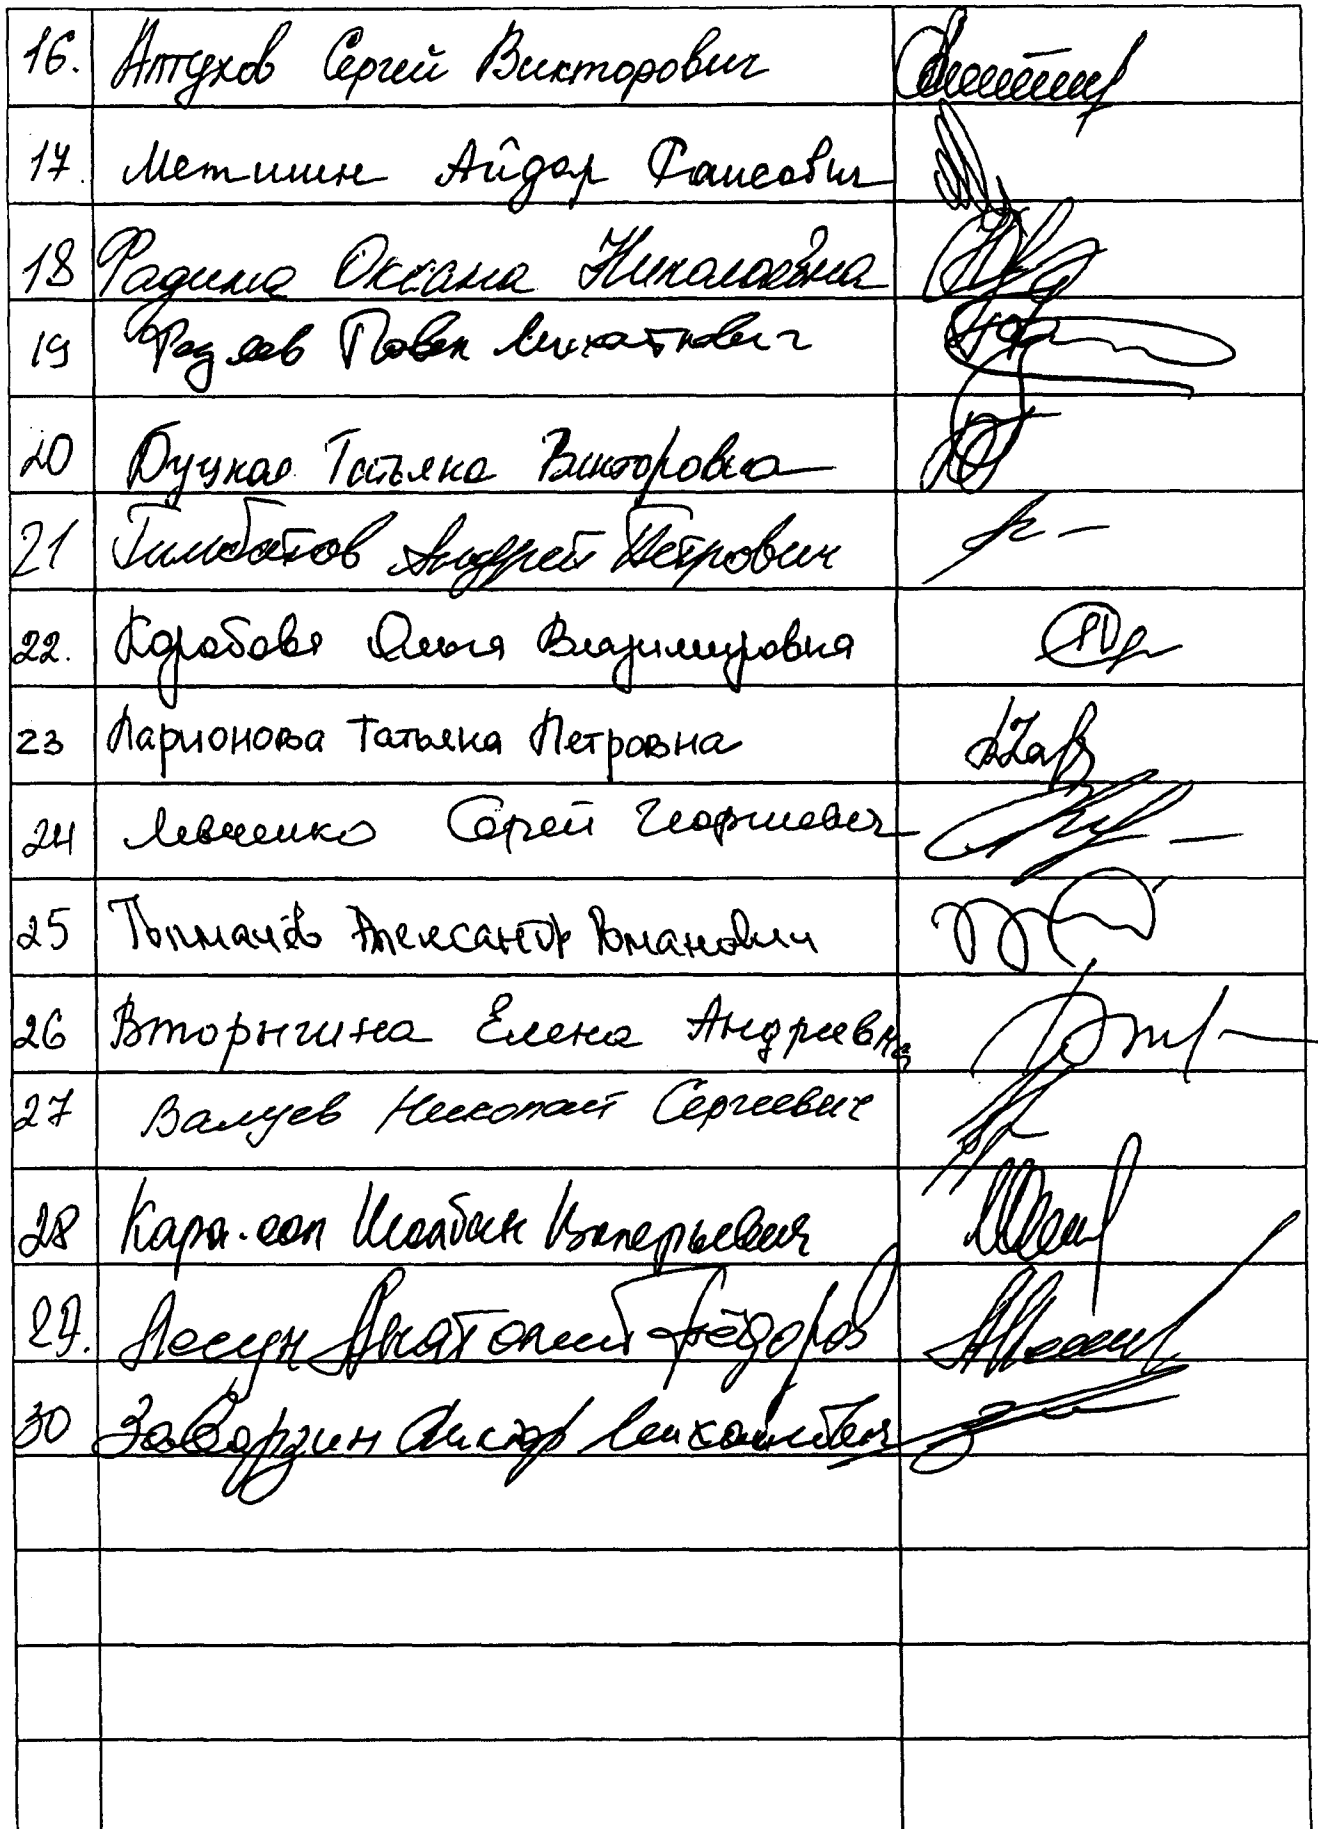 16. Алтухов Сергей Викторович
17. Метшин Айдар Раисович
18 Фадина Оксана Николаевна
19 Федяев Павел Михайлович
20 Буцкая Татьяна Викторовна
21 Гимбатов Андрей Петрович
22. Коробова Ольга Владимировна
23 Ларионова Татьяна Петровна
24 Левченко Сергей Георгиевич
25 Толмачёв Александр Романович
26 Вторыгина Елена Андреевна
27 Валуев Николай Сергеевич
28 Кара-оол Шолбан Валерьевич
29. Лесун Анатолий Фёдоров
30 Заварзин Виктор Михайлович